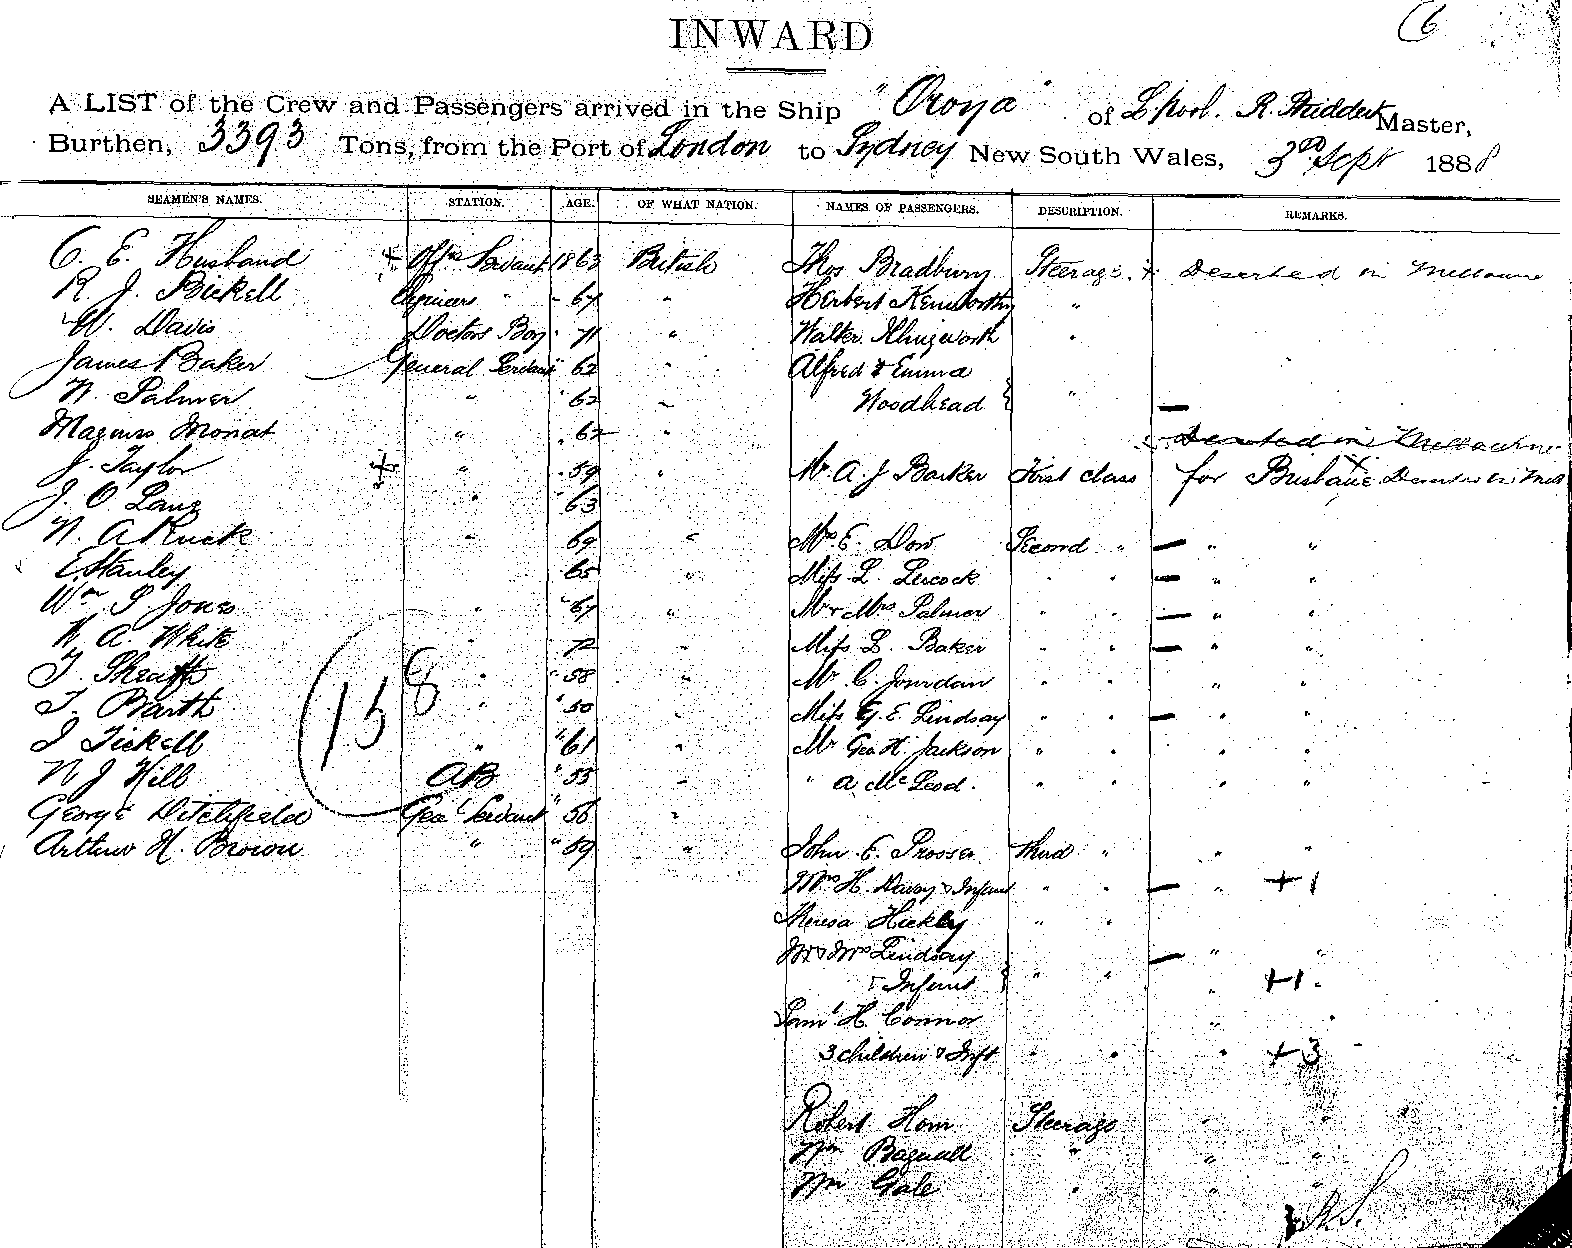 6
INWARD
A LIST of the Crew and Passengers arrived in the Ship "Oroya" of L'pool. R. Master,
Burthen, 3393 Tons, from the Port of London to Sydney New South Wales, 3rd Sept 1888
SEAMEN'S NAMES. STATION. AGE. OF WHAT NATION. NAMES OF PASSENGERS. DESCRIPTION. REMARKS.
C. E. Husband + Offrs Servant 1863 British Thos Bradbury Steerage. + Deserted in Melbourne
R. J. Bickell " - 67 " Herbert Kenworthy "
W. Davis Doctors Boy - 71 " Walter "
James Baker General Servant " 62 " Alfred & Emma
W. Palmer " " 62 " Woodhead } " —
Monat " " 62 " Deserted in Melbourne
J. Taylor + " " 59 " Mr. A. J. Barker First class for Brisbane
J. O. Lang " 63
W. A. Ruck " 69 " Mrs. E. Dow Second " — " "
E Stanley 65 " Miss L. " " — " "
Wm S Jones " " 67 " Mr & Mrs. Palmer " " — " "
W. A. White 72 " Miss L. Baker " " — " "
T. " " 58 " Mr. C. Jourdan " " " "
T. Barth " " 50 " Miss G. E. Lindsay " " — " "
J Tickell " " 61 " Mr Geo H. Jackson " " " "
W J Hill AB " 55 " " A McLeod. " " " "
George Genl Servant " 56 "
Arthur H. Brown " " 59 " John E. Prosser Third " " "
(158
Mrs H. & Infant " " — " +1
Theresa " "
Mr & Mrs Lindsay — " "
& Infant } " " " +1.
Saml H. Connor " "
3 children & Inft " " " +3
Robert Horn Steerage " "
Wm Bagnall " " "
Wm Gale " " "